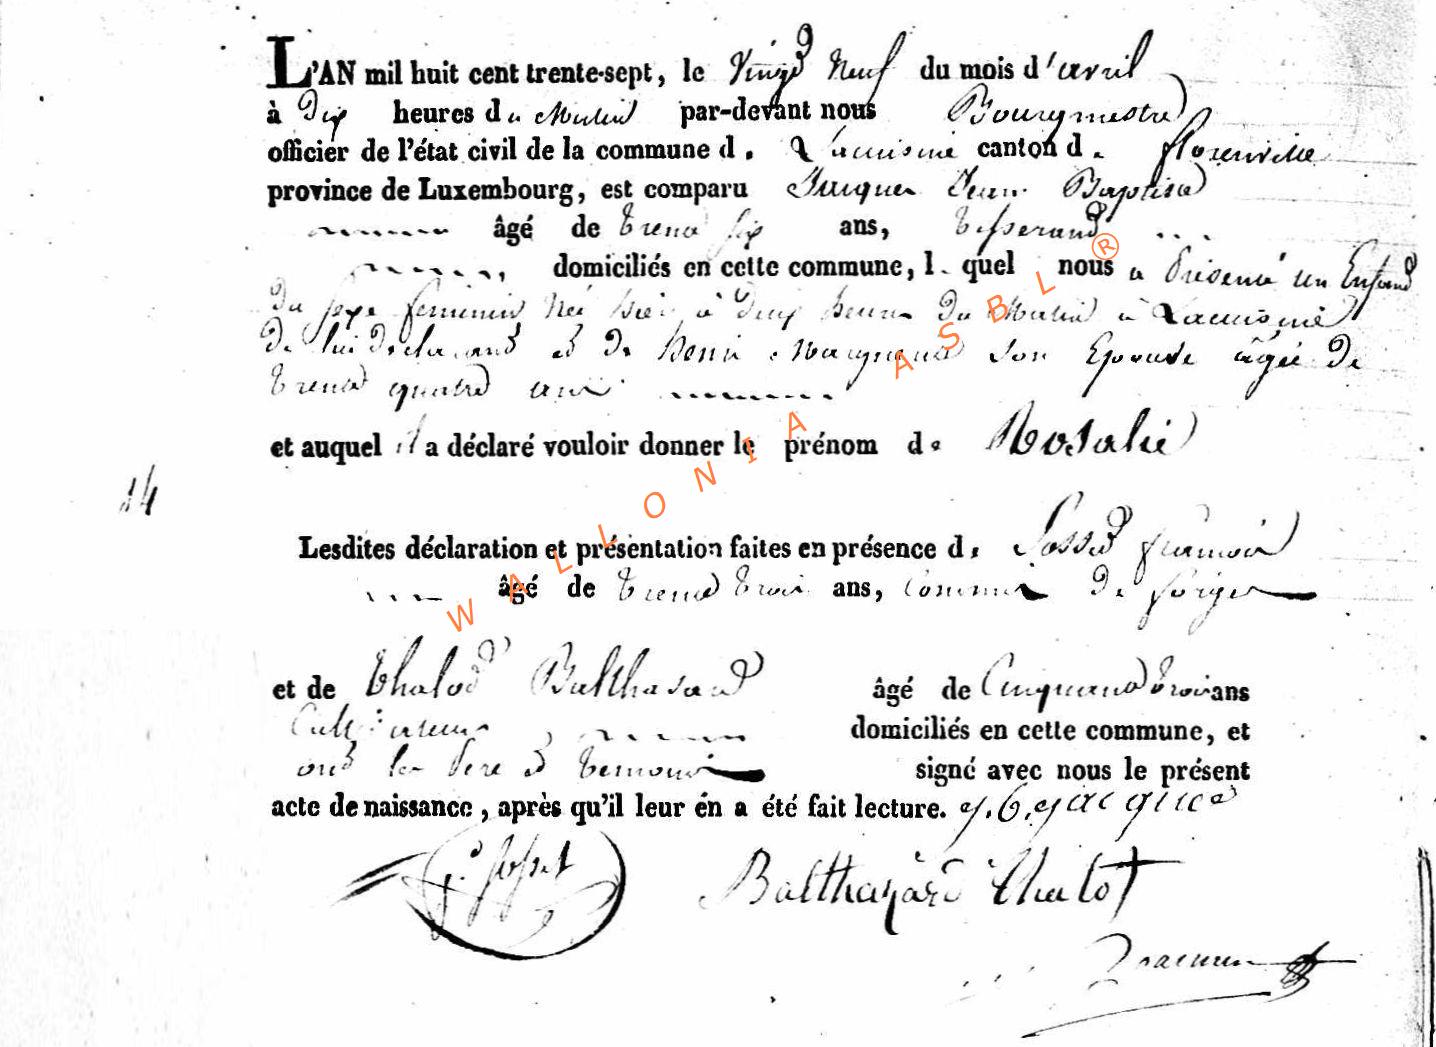 L'AN mil huit cent trente-sept, le Vingt Neuf du mois d'avril
à Dix heures du Matin par-devant nous Bourgmestre
officier de l'état civil de la commune d. Lacuisine canton d. florenville
province de Luxembourg, est comparu Jacques Jean Baptiste
âgé de trente six ans, tisserand
domiciliés en cette commune, l. quel nous a présenté un Enfant
du sexe feminin Né hier à Dix heures du Matin à Lacuisine
De lui déclarant et De henri son Epouse âgée De
trente quatre ans
et auquel il a déclaré vouloir donner le prénom de Rosalie
14
Lesdites déclaration et présentation faites en présence de Josset françois
âgé de trente trois ans, Commis De forges
et de thalot Balthasard âgé de Cinquante trois ans
Cultivateur domiciliés en cette commune, et
ont les Père et temoins signé avec nous le présent
acte de naissance, après qu'il leur én a été fait lecture. J.B. Jacques
f. Josset Balthazard thalot
WALLONIA ASBL ®